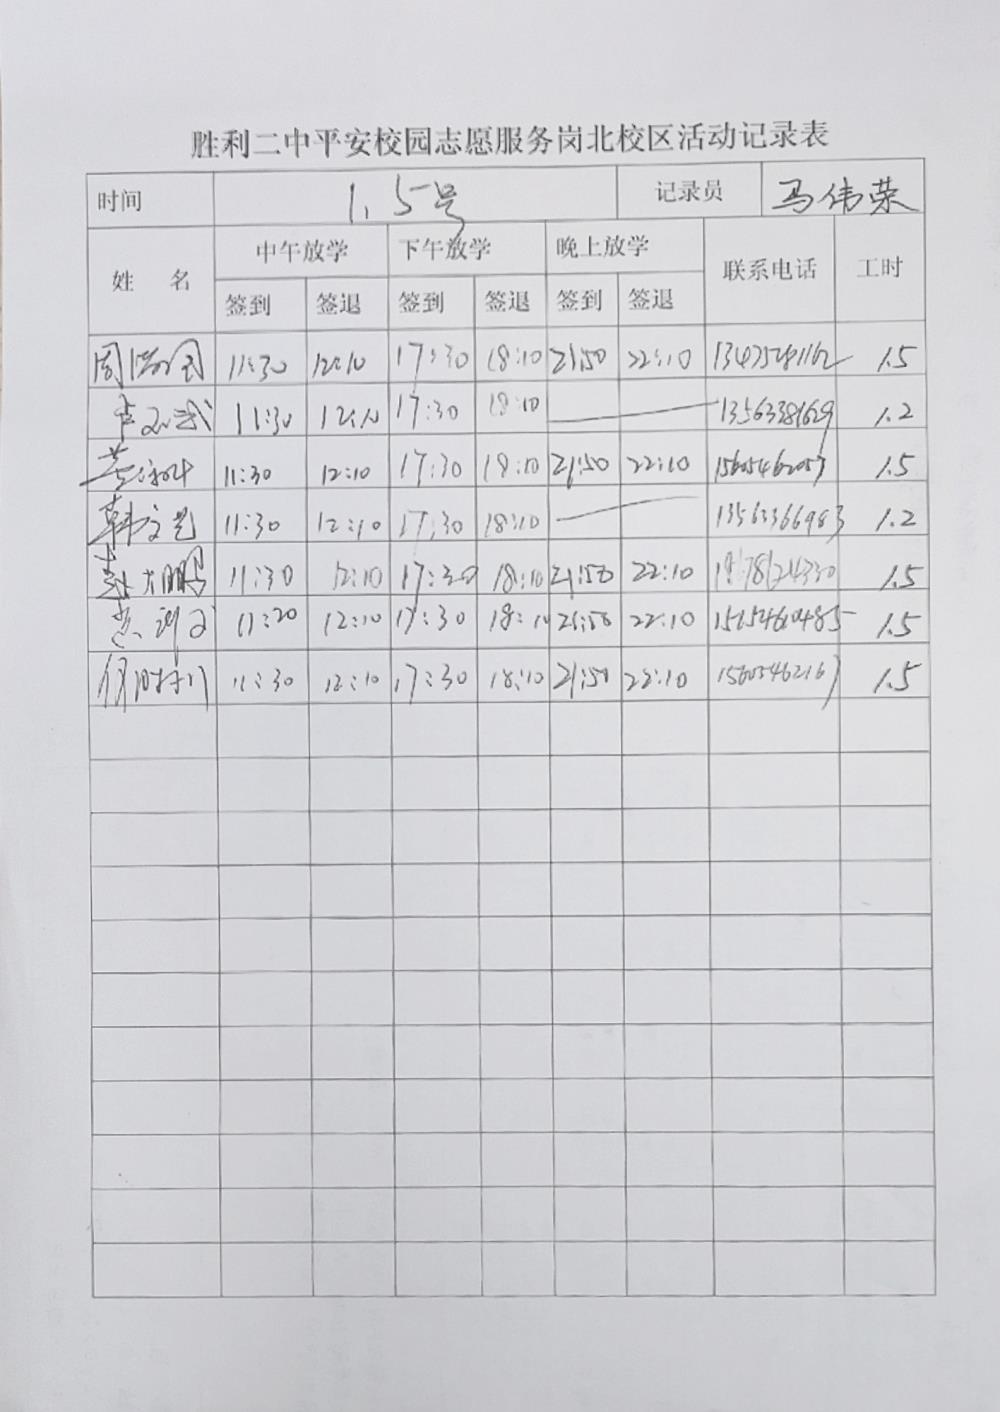 胜利二中平安校园志愿服务岗北校区活动记录表
时间 1.5号 记录员 马伟荣
姓 名 中午放学 下午放学 晚上放学 联系电话 工时
签到 签退 签到 签退 签到 签退
11:30 12:10 17:30 18:10 21:50 22:10 13475281162 1.5
11:30 12:10 17:30 18:10 13563381629 1.2
11:30 12:10 17:30 18:10 21:50 22:10 15605462057 1.5
韩文艺 11:30 12:10 17:30 18:10 13563366983 1.2
11:30 12:10 17:30 18:10 21:50 22:10 1.5
11:20 12:10 17:30 18:10 21:50 22:10 15154610485 1.5
11:30 12:10 17:30 18:10 21:50 22:10 15605462167 1.5